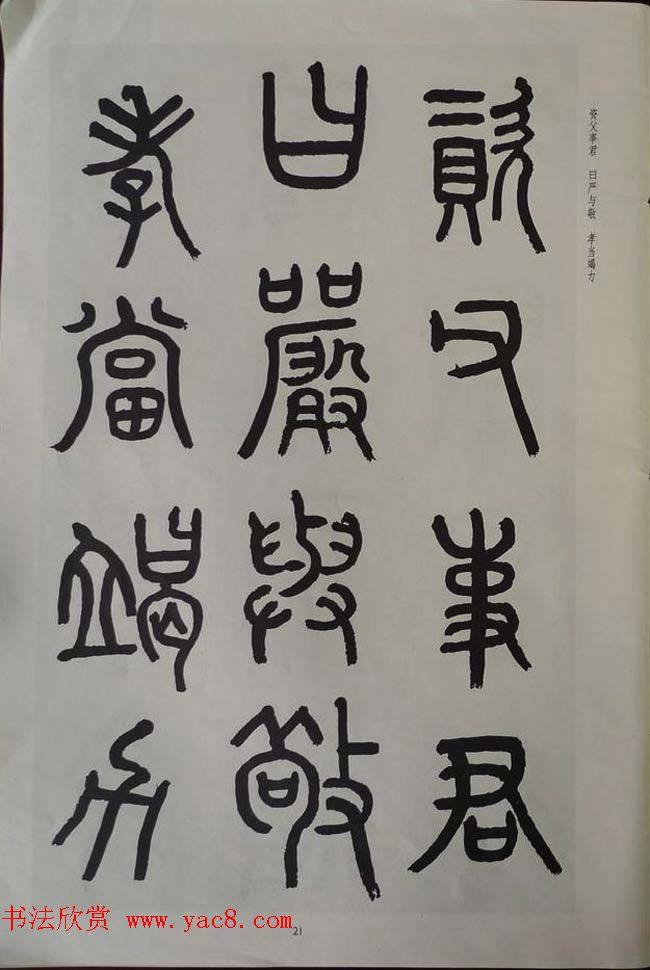 资父事君 曰严与敬 孝当竭力
資父事君
曰嚴與敬
孝當竭力
书法欣赏 www.yac8.com
21